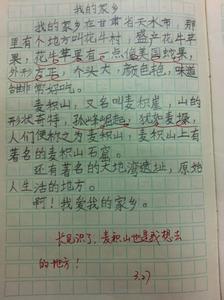 我的家乡
我的家乡在甘肃省天水市，那
里有个地方叫花牛村，盛产花牛苹
果，花牛苹果有一点像美国蛇果，
外形方正，个头大，颜色艳，味道
甜非常好吃。
麦积山，又名叫麦积崖，山的
形状奇特，孤峰崛起，犹如麦垛，
人们便称之为麦积山，麦积山上有
著名的麦积山石窟。
还有著名的大地湾遗址，原始
人生活的地方。
啊！我爱我的家乡。
长见识了，麦积山也是我想去
的地方！
3.27